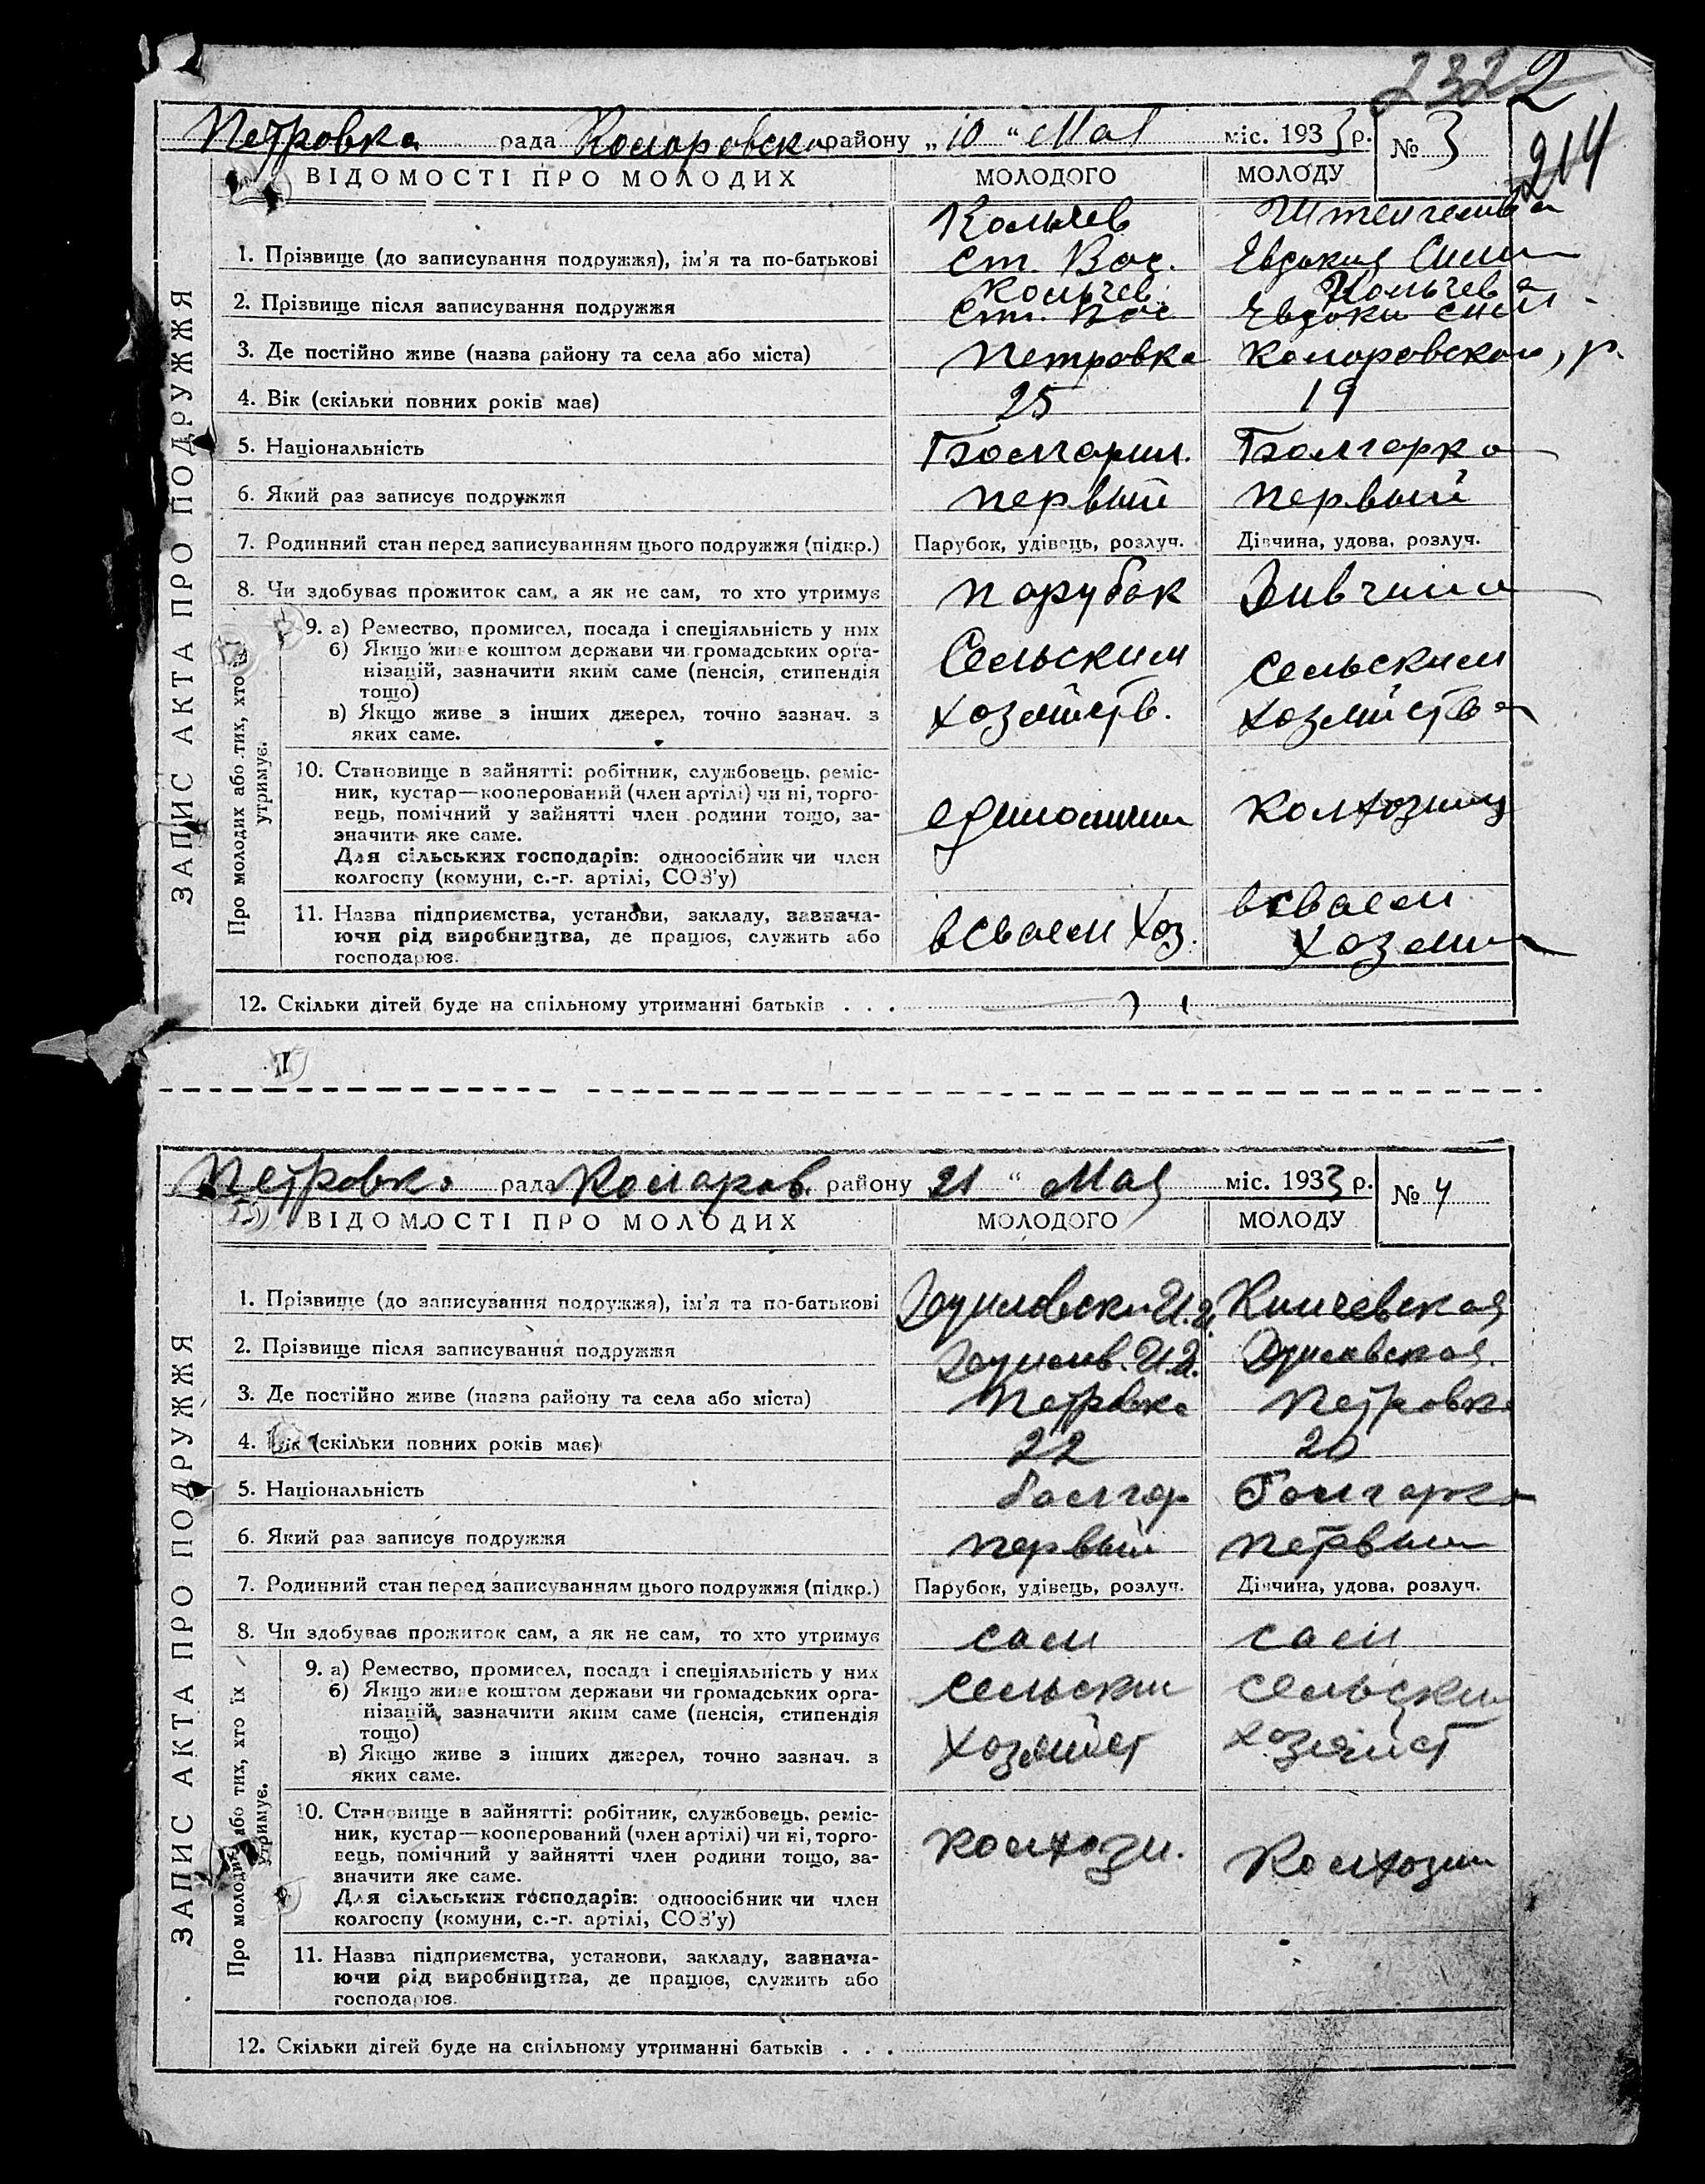 232 2
214
Петровка рада Коларовско району „10 “ Мая міс. 1933 р. № 3
ВІДОМОСТІ ПРО МОЛОДИХ МОЛОДОГО МОЛОДУ
ЗАПИС АКТА ПРО ПОДРУЖЖЯ
1. Прізвище (до записування подружжя), ім'я та по-батькові Ст. Вас. Евдокия
2. Прізвище після записування подружжя Кольчев Ст. Вас Кольчева
3. Де постійно живе (назва району та села або міста) Петровка Коларовского, р.
4. Вік (скільки повних років має) 25 19
5. Національність Болгарин. Болгарка
6. Який раз записує подружжя первый первый
7. Родинний стан перед записуванням цього подружжя (підкр.) Парубок, удівець, розлуч. Дівчина, удова, розлуч.
8. Чи здобуває прожиток сам, а як не сам, то хто утримує парубок Дивчина
Про молодих або тих, хто їх утримує.
9. а) Ремество, промисел, посада і спеціяльність у них
б) Якщо живе коштом держави чи громадських орга- Сельским сельским
нізацій, зазначити яким саме (пенсія, стипендія
тощо)
в) Якщо живе з інших джерел, точно зазнач. з хозяйств. хозяйства
яких саме.
10. Становище в зайнятті: робітник, службовець, реміс-
ник, кустар—кооперований (член артілі) чи ні, торго-
вець, помічний у зайнятті член родини тощо, за- единолични колхозниц
значити яке саме.
Для сільських господарів: одноосібник чи член
колгоспу (комуни, с.-г. артілі, СОЗ'у)
11. Назва підприємства, установи, закладу, зазнача- всваем
ючи рід виробництва, де працює, служить або всваем хоз. хозяй
господарює.
12. Скільки дітей буде на спільному утриманні батьків . . .
II
Петровка рада Коларов. району 21 “ Мая міс. 1933 р. № 4
ВІДОМОСТІ ПРО МОЛОДИХ МОЛОДОГО МОЛОДУ
ЗАПИС АКТА ПРО ПОДРУЖЖЯ
1. Прізвище (до записування подружжя), ім'я та по-батькові
2. Прізвище після записування подружжя
3. Де постійно живе (назва району та села або міста) Петровка Петровка
4. Вік (скільки повних років має) 22 20
5. Національність болгар Болгарка
6. Який раз записує подружжя первый первый
7. Родинний стан перед записуванням цього подружжя (підкр.) Парубок, удівець, розлуч. Дівчина, удова, розлуч.
8. Чи здобуває прожиток сам, а як не сам, то хто утримує сам сам
Про молодих або тих, хто їх утримує.
9. а) Ремество, промисел, посада і спеціяльність у них
б) Якщо живе коштом держави чи громадських орга- сельским сельским
нізацій, зазначити яким саме (пенсія, стипендія
тощо)
в) Якщо живе з інших джерел, точно зазнач. з хозяйст хозяйст
яких саме.
10. Становище в зайнятті: робітник, службовець, реміс-
ник, кустар—кооперований (член артілі) чи ні, торго-
вець, помічний у зайнятті член родини тощо, за- колхозн. Колхозни
значити яке саме.
Для сільських господарів: одноосібник чи член
колгоспу (комуни, с.-г. артілі, СОЗ'у)
11. Назва підприємства, установи, закладу, зазнача-
ючи рід виробництва, де працює, служить або
господарює.
12. Скільки дітей буде на спільному утриманні батьків . . .